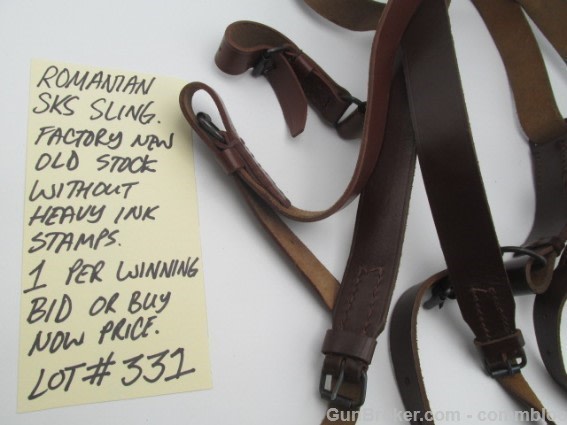 ROMANIAN
SKS SLING.
FACTORY NEW
OLD STOCK
WITHOUT
HEAVY INK
STAMPS.
1 PER WINNING
BID OR BUY
NOW PRICE.
LOT # 331
GunBroker.com - commbloc